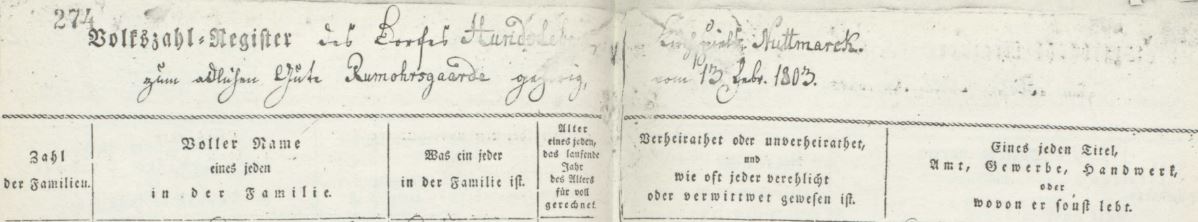 274
Volkszahl-Register des Dorfes
Kirchspiels Nuttmarck.
zum adlichen Gute Rumohrsgaarde gehörig,
vom 13 Febr. 1803.
Zahl
der Familien.
Voller Name
eines jeden
in der Familie.
Was ein jeder
in der Familie ist.
Alter
eines jeden,
das laufende
Jahr
des Alters
für voll
gerechnet.
Verheirathet oder unverheirathet,
und
wie oft jeder verehlicht
oder verwittwet gewesen ist.
Eines jeden Titel,
Amt, Gewerbe, Handwerk,
oder
wovon er sonst lebt.